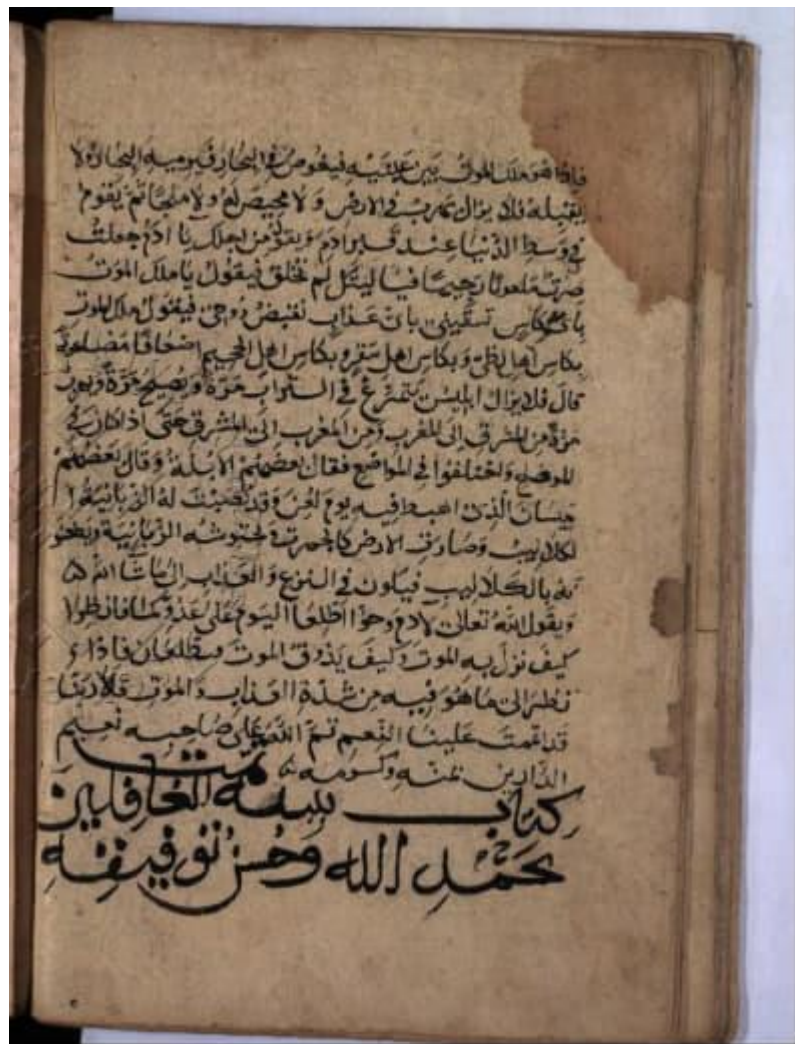 فاذا هو ملك الموت بين عينيه فيغوص في البحار فيرميه البحار ولا
يقبله فلا يزال يهرب في الارض ولا محيص له ولا ملجأ ثم يقوم
في وسط الدنيا عند قبر ادم ويقول من اجلك يا ادم جعلت
صرت ملعونا رجيما فيا ليتني لم نخلق فيقول يا ملك الموت
باي كاس تسقيني باي عذاب تقبض روحي فيقول ملك الموت
بكاس اهل لظى وبكاس اهل سقر وبكاس اهل الجحيم اضعافا مضاعفة
قال فلا يزال ابليس يتمرغ في التراب مرة ويصيح مرة
مرة من المشرق الى المغرب ومن المغرب الى المشرق حتى اذا كان في
الموضع واختلفوا في المواضع فقال بعضهم الابلة وقال بعضهم
الذي اهبط فيه يوم لعن وقد نصبت له الزبانية
لكلاليب وصارت الارض كالجمرة وتحتوشه الزبانية
بالكلاليب فيكون في النزع والعذاب الى ما شا الله
ويقول الله تعالى لادم وحوا اطلعا اليوم على عدوكما فانظرا
كيف نزل به الموت وكيف يذوق الموت فيطلعان فاذا
نظرا الى ما هو فيه من شدة العذاب والموت قالا ربنا
قد اتممت علينا النعيم تم الله على صاحبه نعيم
الدارين بمنه وكرمه تمت
كتاب تنبيه الغافلين
بحمد الله وحسن توفيقه